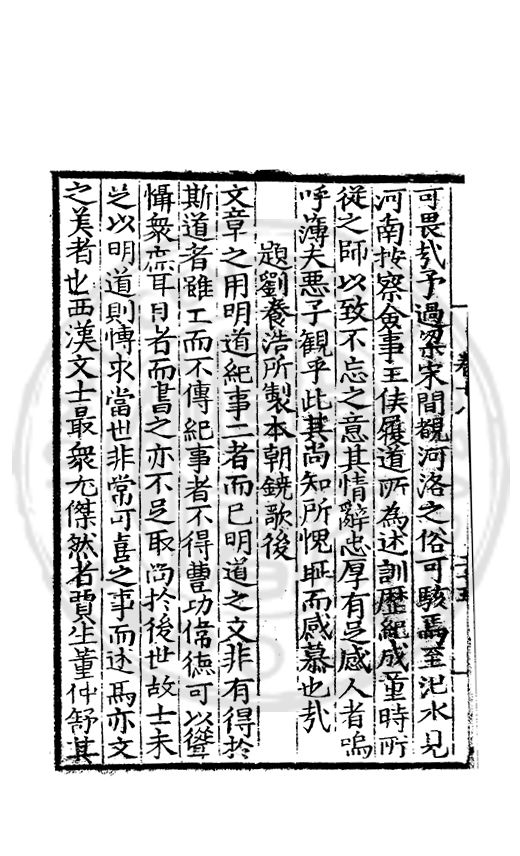 可畏哉予過梁宋間觀河洛之俗可駭焉至汜水見
河南按察僉事王侯履道所為述訓歷紀成童時所
從之師以致不忘之意其情辭忠厚有足感人者嗚
呼薄夫惡子觀乎此其尚知所愧耻而感慕也哉
題劉養浩所製本朝鐃歌後
文章之用明道紀事二者而已明道之文非有得於
斯道者雖工而不傳紀事者不得豐功偉德可以聳
懾衆庶耳目者而書之亦不足取尚於後世故士未
足以明道則博求當世非常可喜之事而述焉亦文
之美者也西漢文士最衆尤傑然者賈生董仲舒其